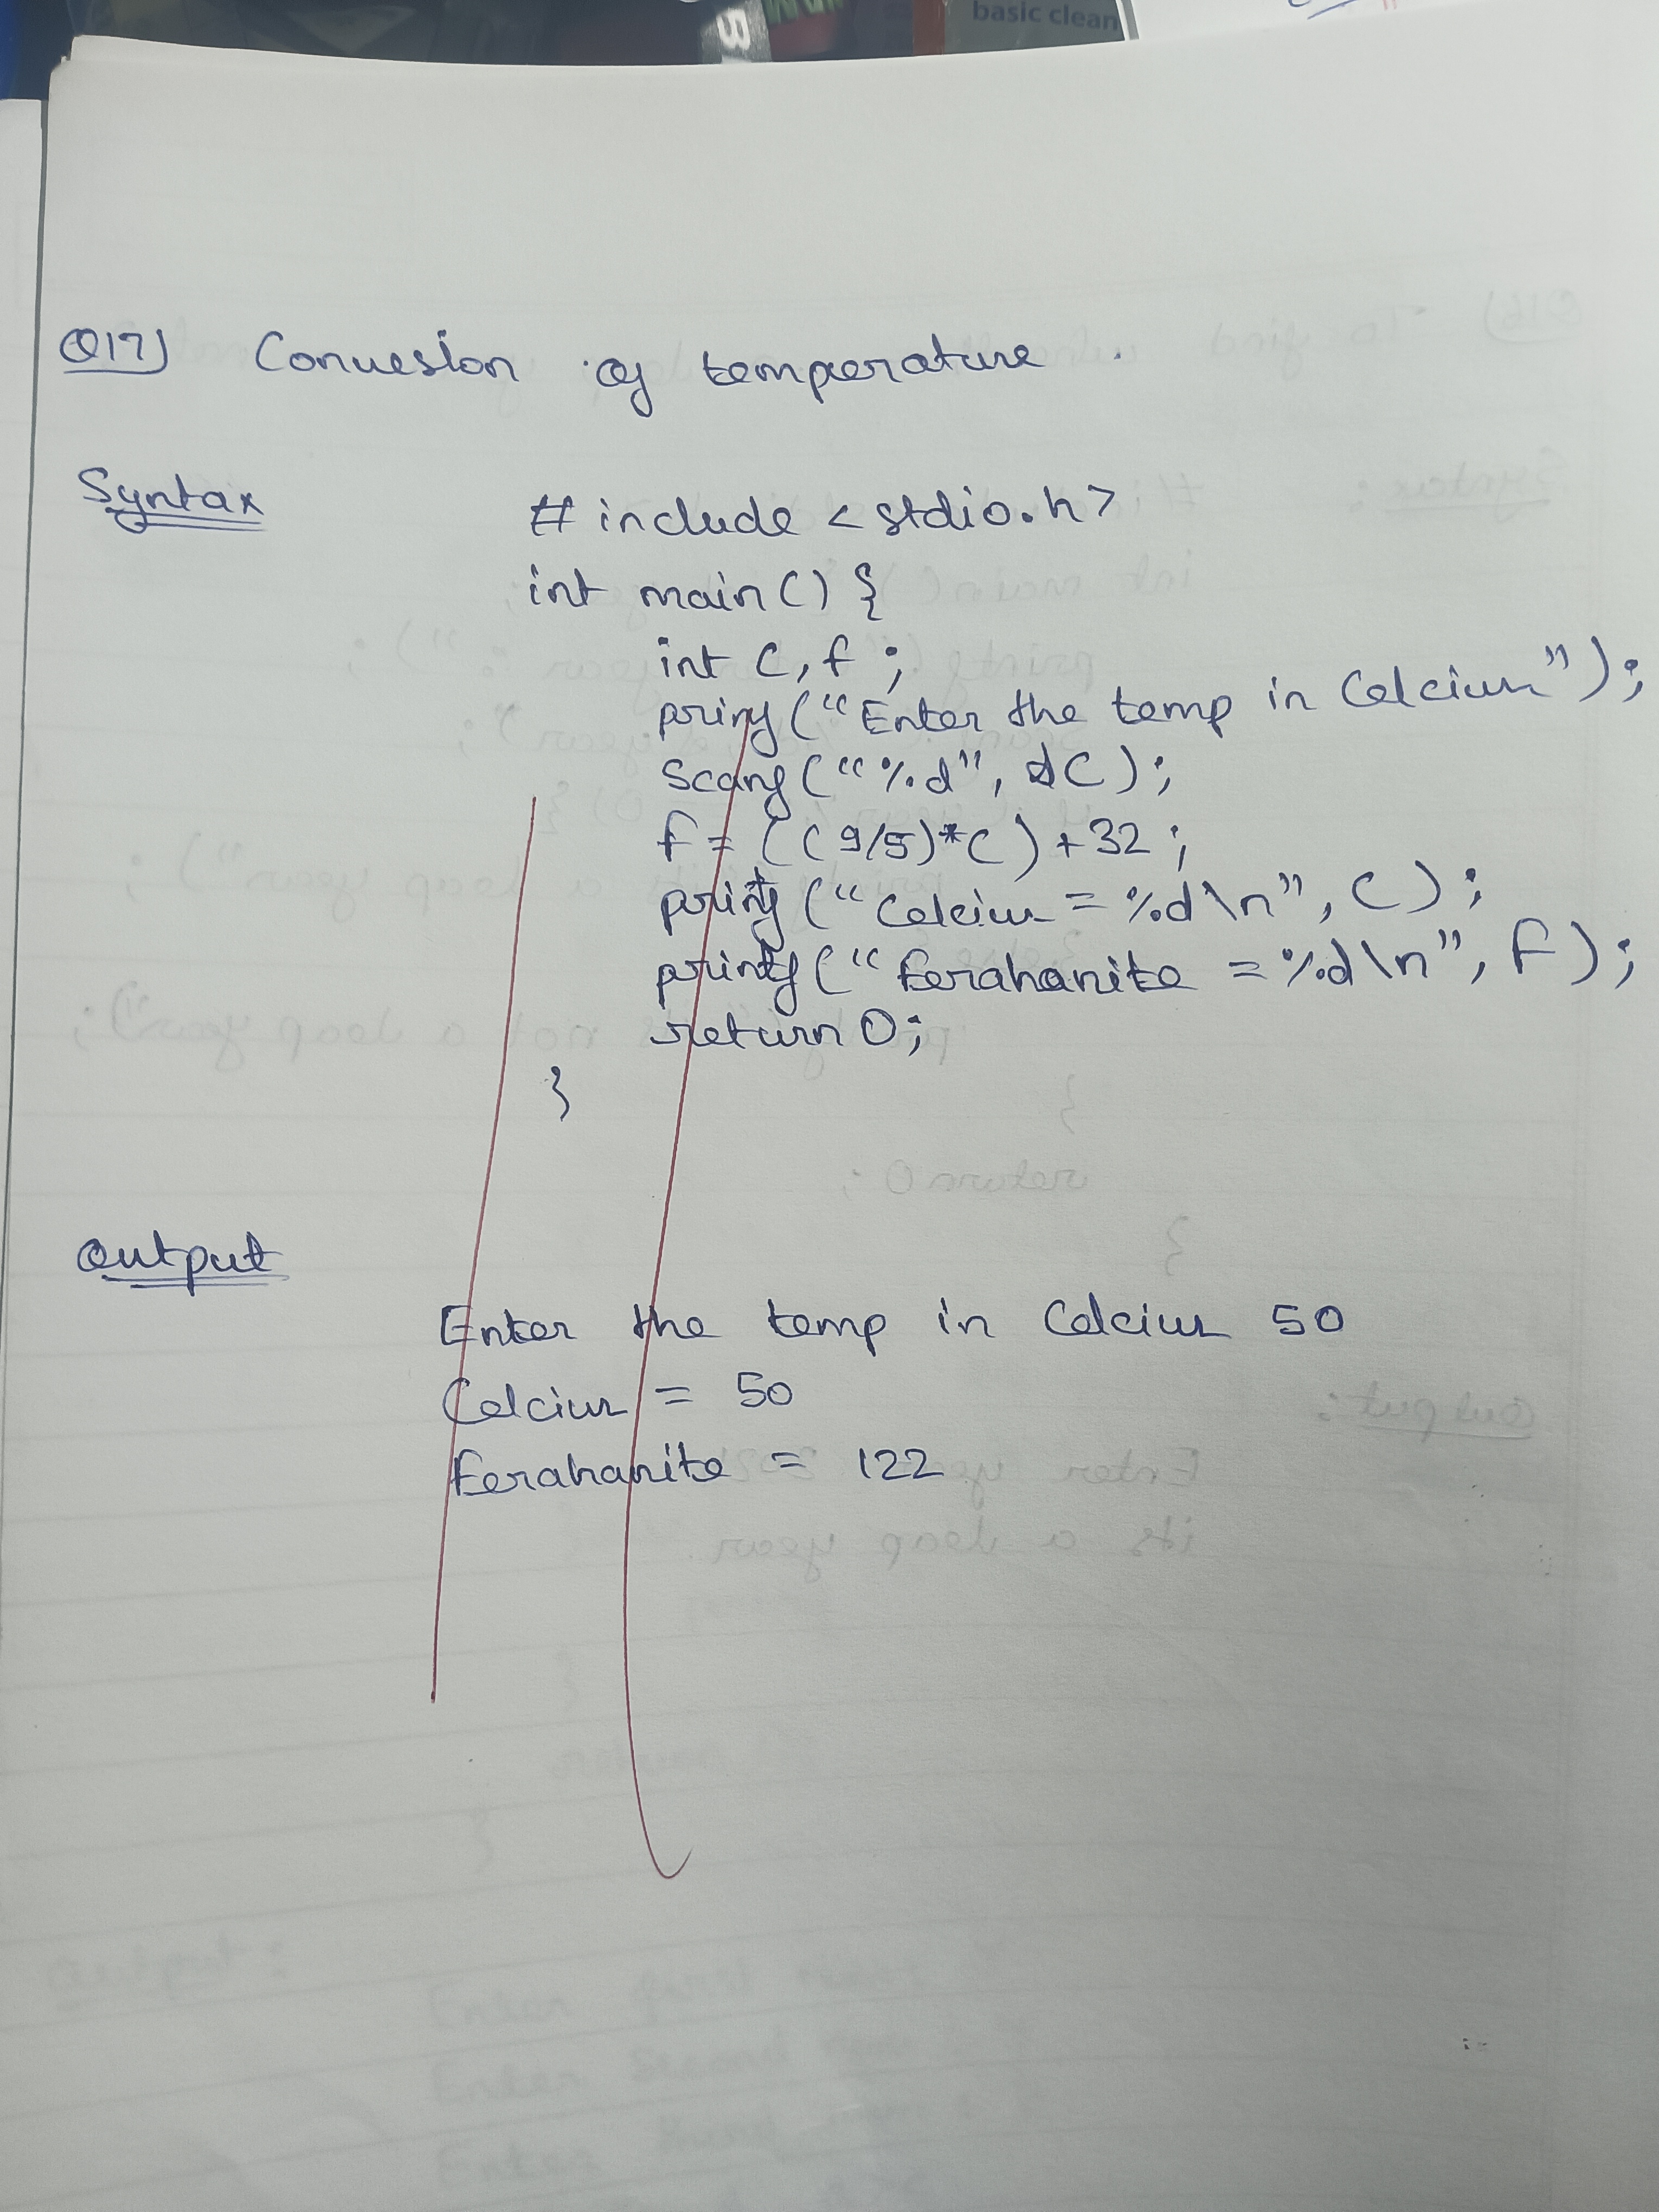 basic clean
Q17) Conversion of temperature.
Syntax
#include <stdio.h>
int main() {
int C, f;
printf("Enter the temp in Celcius");
Scanf("%d", &C);
f = ((9/5)*C) + 32;
printf("Celcius = %d\n", C);
printf("Ferahanite = %d\n", F);
return 0;
}
Output
Enter the temp in Celcius 50
Celcius = 50
Ferahanite = 122